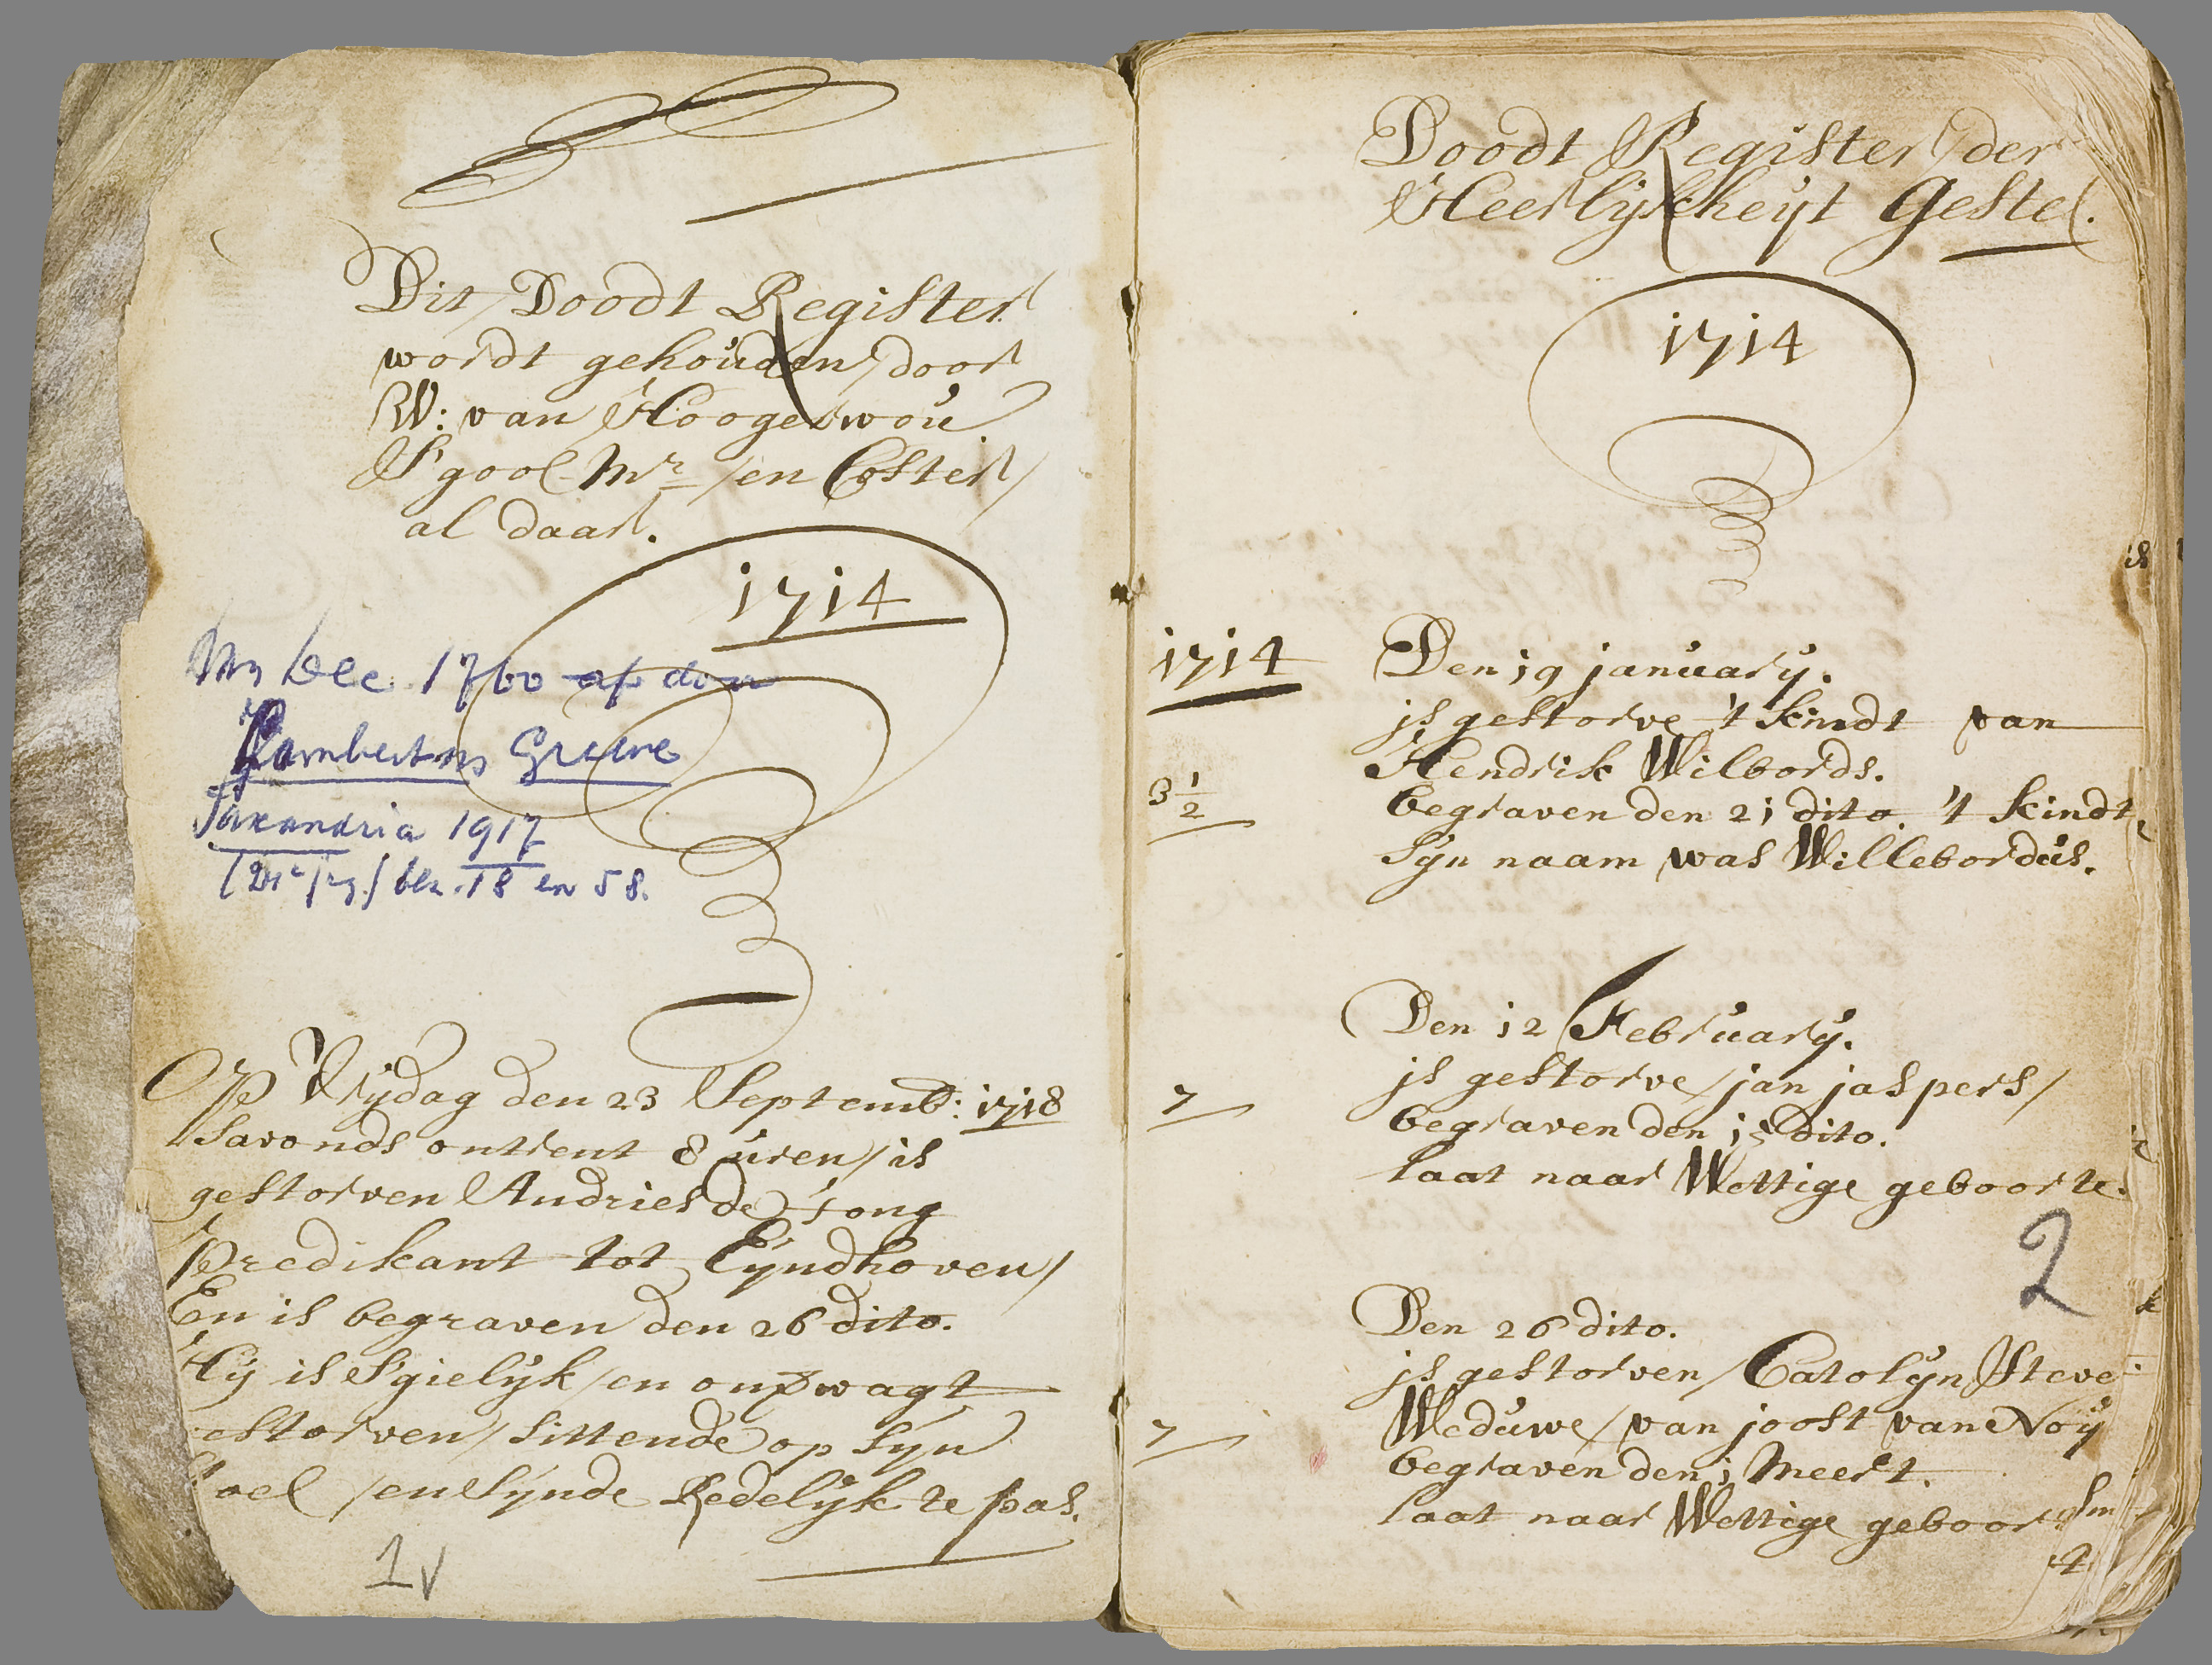 Dit Doodt Register
wordt gehouden door
W: van Hoogerwou
S'gool Mr en Coster
al daar.
1714
Lambertus Gruwe
Taxandria 1917
blz. 18 en 58.
Op Vrydag den 23 Septemb: 1718
Savonds ontrent 8 uren is
gestorven Andries de Jong
Predikant tot Eyndhoven
En is begraven den 26 dito.
Hy is S'gielyk en onverwagt
estorven sittende op Syn
toel en Synde Redelyk te pas.
1v
Doodt Register der
Heerlykheyt Gestel.
1714
1714 Den 19 january.
js gestorve 't kindt van
Hendrik Wilbords.
3 1/2 begraven den 21 dito 't kindt
Syn naam was Willebordus.
Den 12 February.
js gestorve jan jaspers
7 begraven den 15 dito.
laat naar Wettige geboorte.
2
Den 26 dito.
js gestorven Catolyn Steve
Weduwe van joost van Noy
7 begraven den 1 Meert.
laat naar Wettige geboor